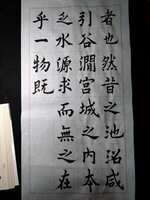 者也然昔之池沼咸
引谷澗宮城之内本
乏水源求而無之在
乎一物既